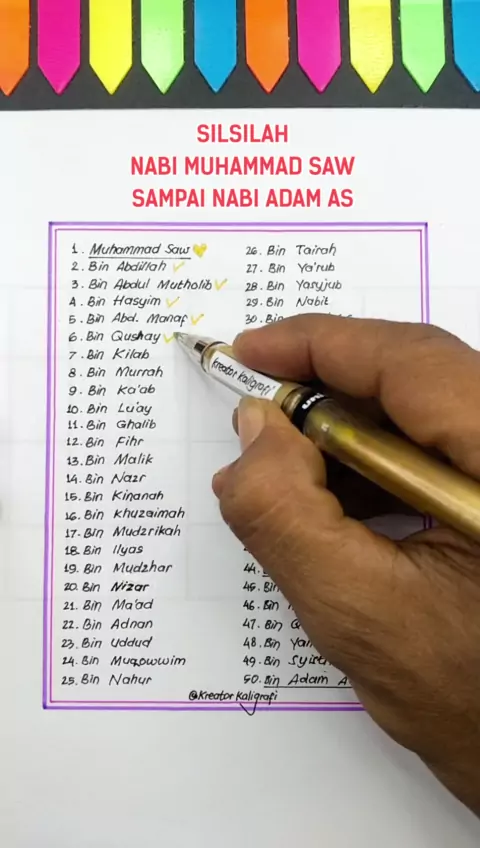 SILSILAH
NABI MUHAMMAD SAW
SAMPAI NABI ADAM AS
1. Muhammad Saw
2. Bin Abdillah
3. Bin Abdul Mutholib
4. Bin Hasyim
5. Bin Abd. Manaf
6. Bin Qushay
7. Bin Kilab
8. Bin Murrah
9. Bin Ka'ab
10. Bin Lu'ay
11. Bin Ghalib
12. Bin Fihr
13. Bin Malik
14. Bin Nazr
15. Bin Kinanah
16. Bin Khuzaimah
17. Bin Mudzrikah
18. Bin Ilyas
19. Bin Mudzhar
20. Bin Nizar
21. Bin Ma'ad
22. Bin Adnan
23. Bin Uddud
24. Bin Muqowwim
25. Bin Nahur
26. Bin Tairah
27. Bin Ya'rub
28. Bin Yasyjub
29. Bin Nabit
30. Bin
44.
45. Bin
46. Bin
47. Bin
48. Bin
49. Bin
50. Bin Adam A
@Kreator Kaligrafi
Kreator Kaligrafi